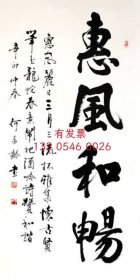 惠風和暢
惠風麗日三月三流杯雅集懷古賢
筆走龍蛇春意鬧對酒吟詩贊和諧
辛卯仲春 何書
有发票
0546 0026